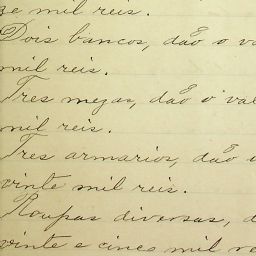 ze mil reis.
Dois bancos, dão o va
mil reis.
Tres mezas, dão o val
mil reis.
Tres armarios, dão o
vinte mil reis.
Roupas diversas, d
vinte e cinco mil re